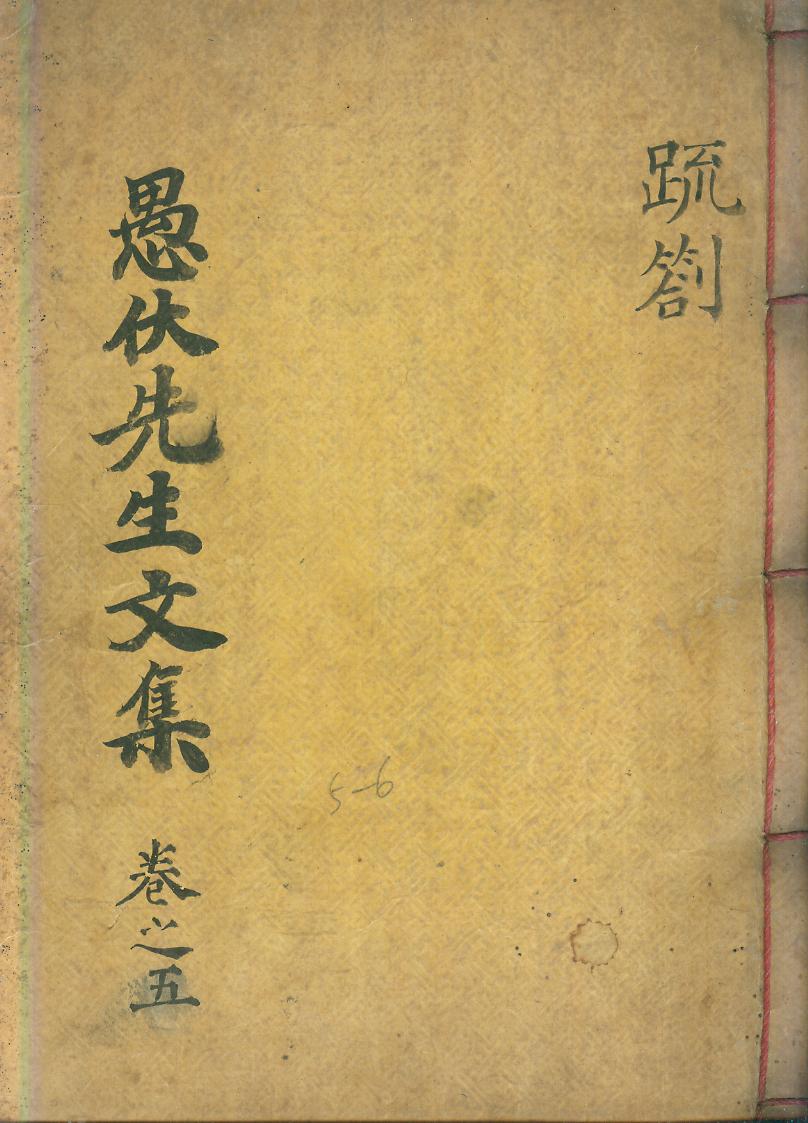 疏劄
愚伏先生文集 卷之五
5-6